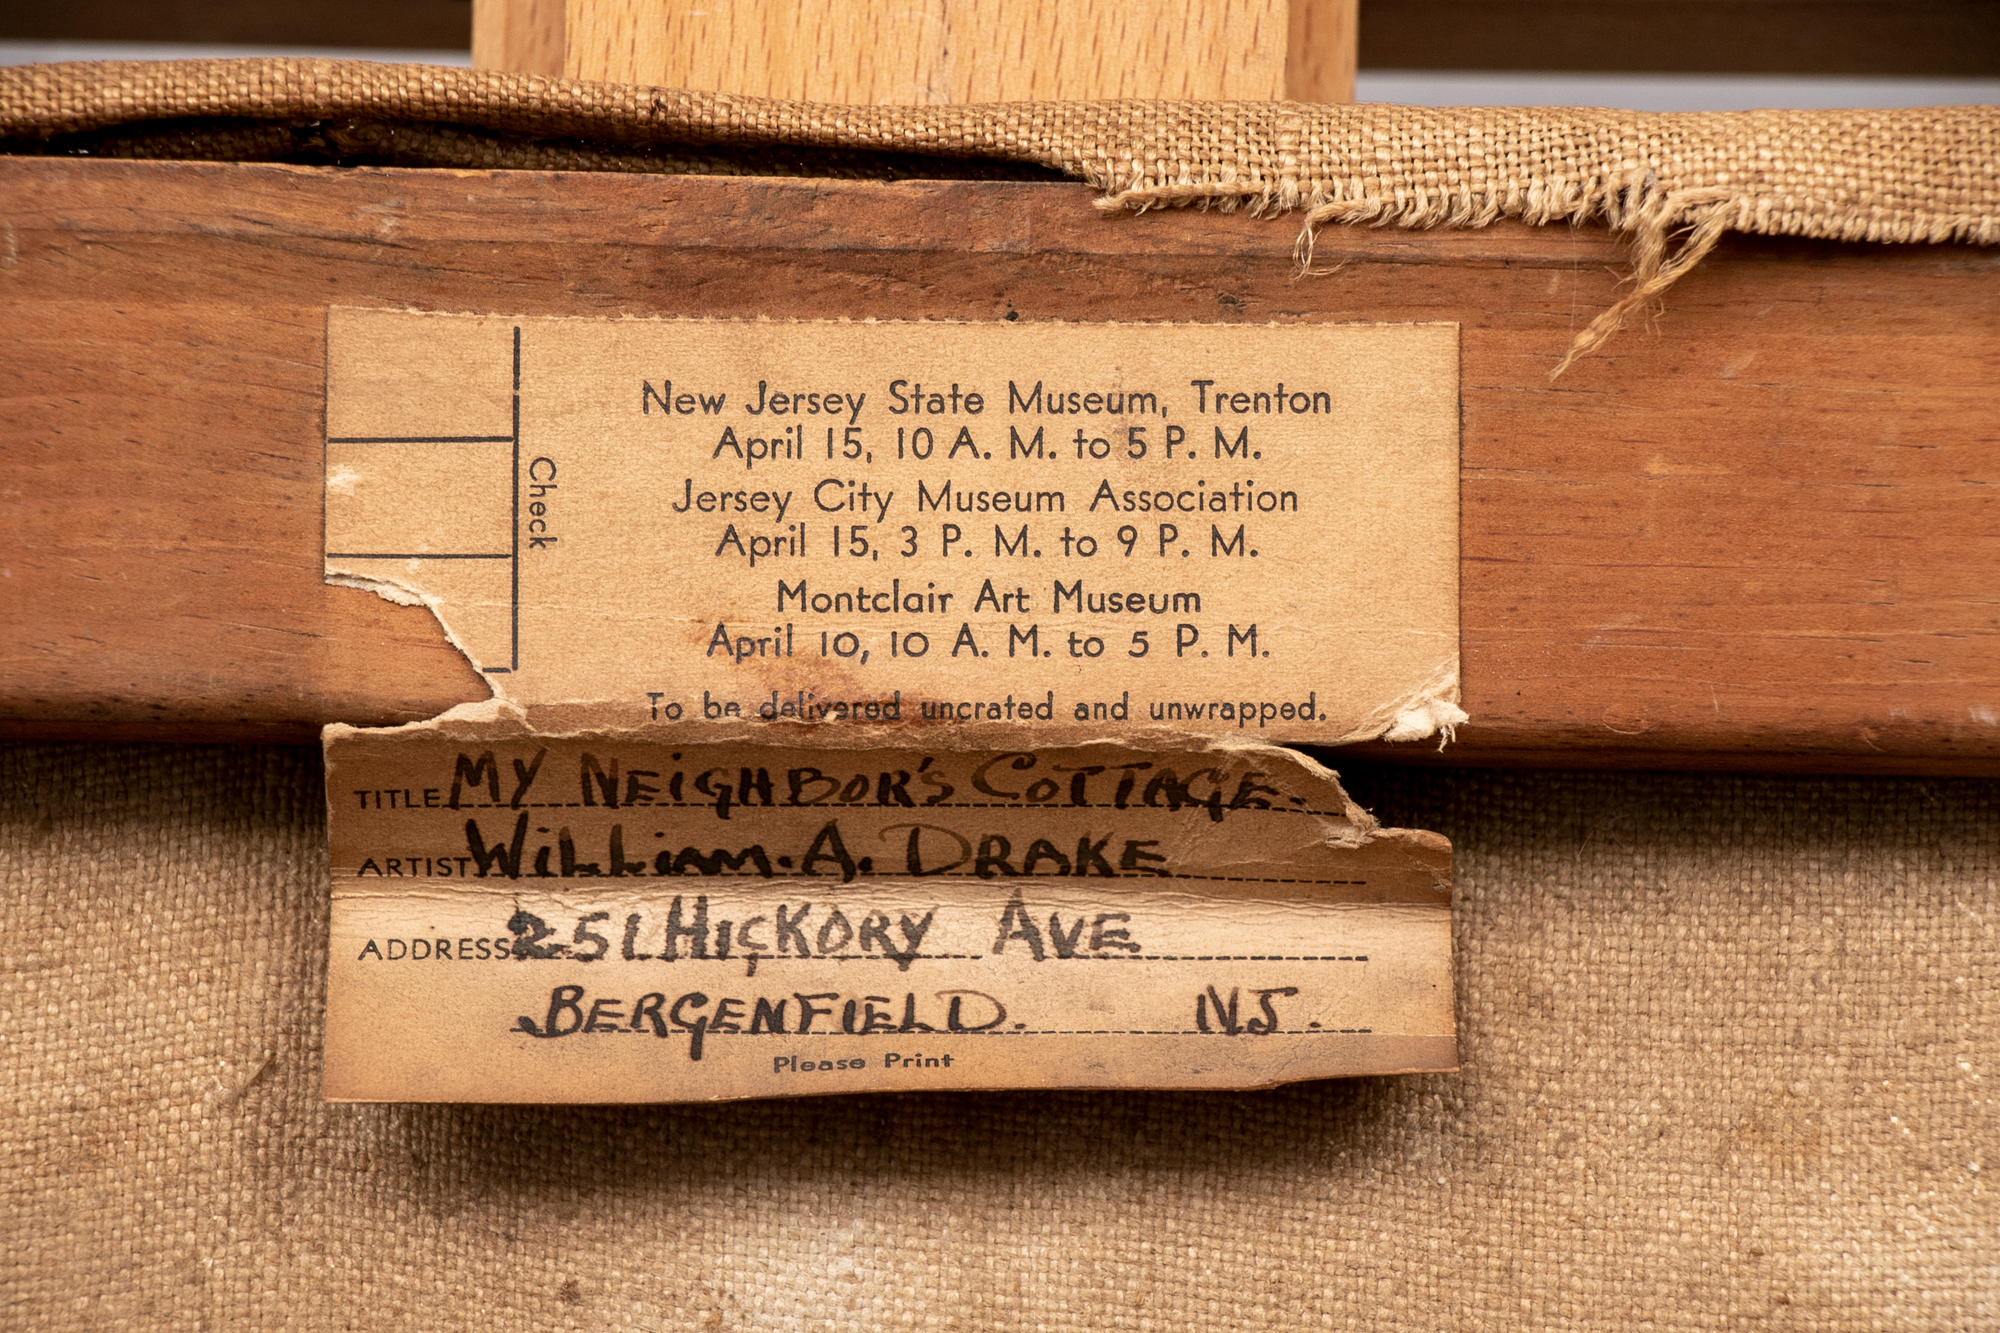 New Jersey State Museum, Trenton
April 15, 10 A. M. to 5 P. M.
Jersey City Museum Association
April 15, 3 P. M. to 9 P. M.
Montclair Art Museum
April 10, 10 A. M. to 5 P. M.
To be delivered uncrated and unwrapped.
Check
TITLE MY NEIGHBOR'S COTTAGE.
ARTIST WILLIAM. A. DRAKE
ADDRESS 251 HICKORY AVE
BERGENFIELD. NJ.
Please Print